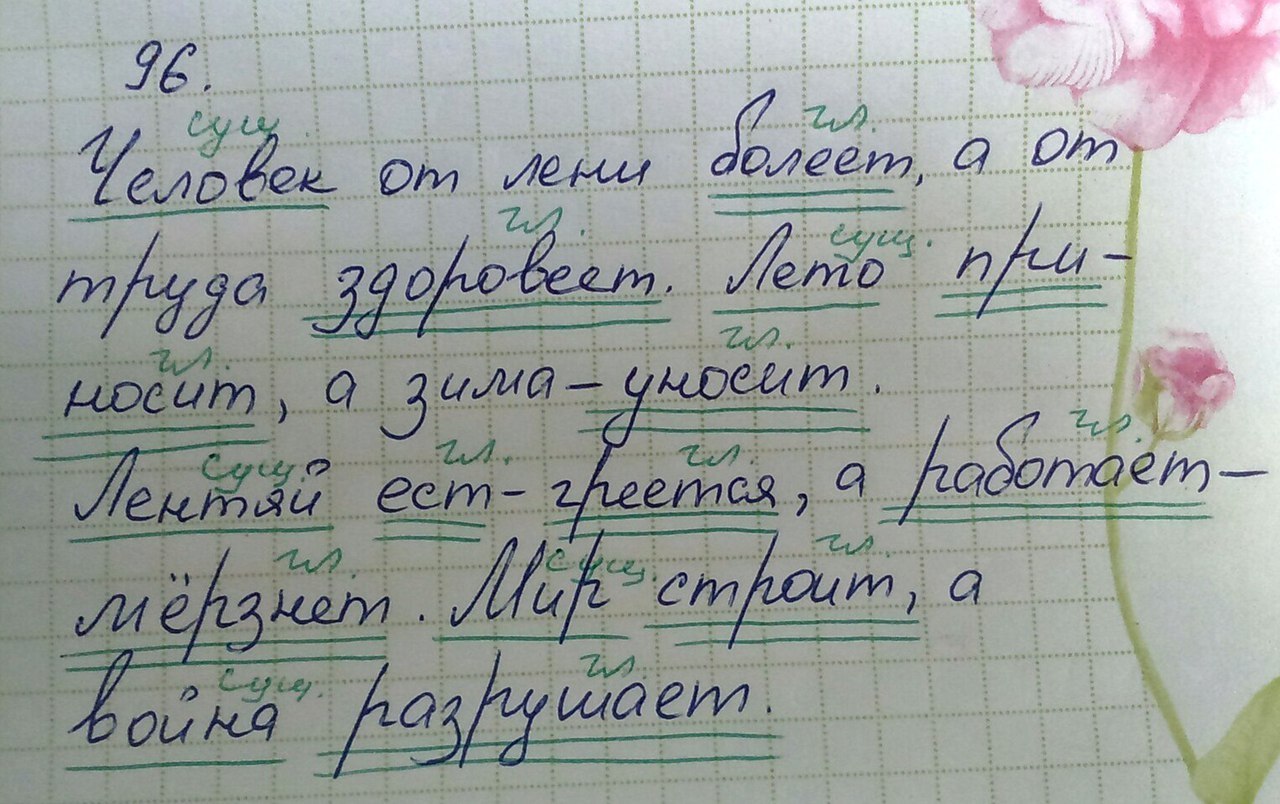 96.
сущ. гл.
Человек от лени болеет, а от
гл. сущ.
труда здоровеет. Лето при-
гл. гл.
носит, а зима – уносит.
сущ. гл. гл. гл.
Лентяй ест – греется, а работает –
гл. сущ. гл.
мёрзнет. Мир строит, а
сущ. гл.
война разрушает.